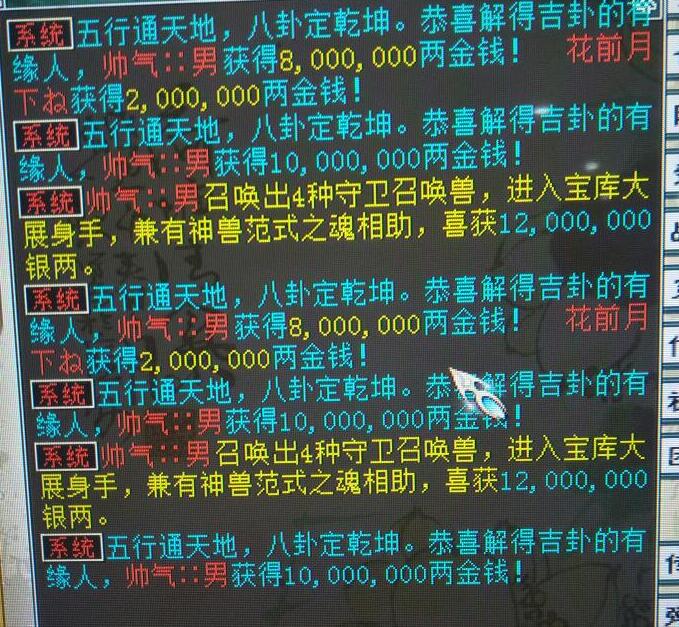 系统 五行通天地，八卦定乾坤。恭喜解得吉卦的有
缘人，帅气::男获得8,000,000两金钱！ 花前月
下ね获得2,000,000两金钱！
系统 五行通天地，八卦定乾坤。恭喜解得吉卦的有
缘人，帅气::男获得10,000,000两金钱！
系统 帅气::男召唤出4种守卫召唤兽，进入宝库大
展身手，兼有神兽范式之魂相助，喜获12,000,000
银两。
系统 五行通天地，八卦定乾坤。恭喜解得吉卦的有
缘人，帅气::男获得8,000,000两金钱！ 花前月
下ね获得2,000,000两金钱！
系统 五行通天地，八卦定乾坤。恭喜解得吉卦的有
缘人，帅气::男获得10,000,000两金钱！
系统 帅气::男召唤出4种守卫召唤兽，进入宝库大
展身手，兼有神兽范式之魂相助，喜获12,000,000
银两。
系统 五行通天地，八卦定乾坤。恭喜解得吉卦的有
缘人，帅气::男获得10,000,000两金钱！